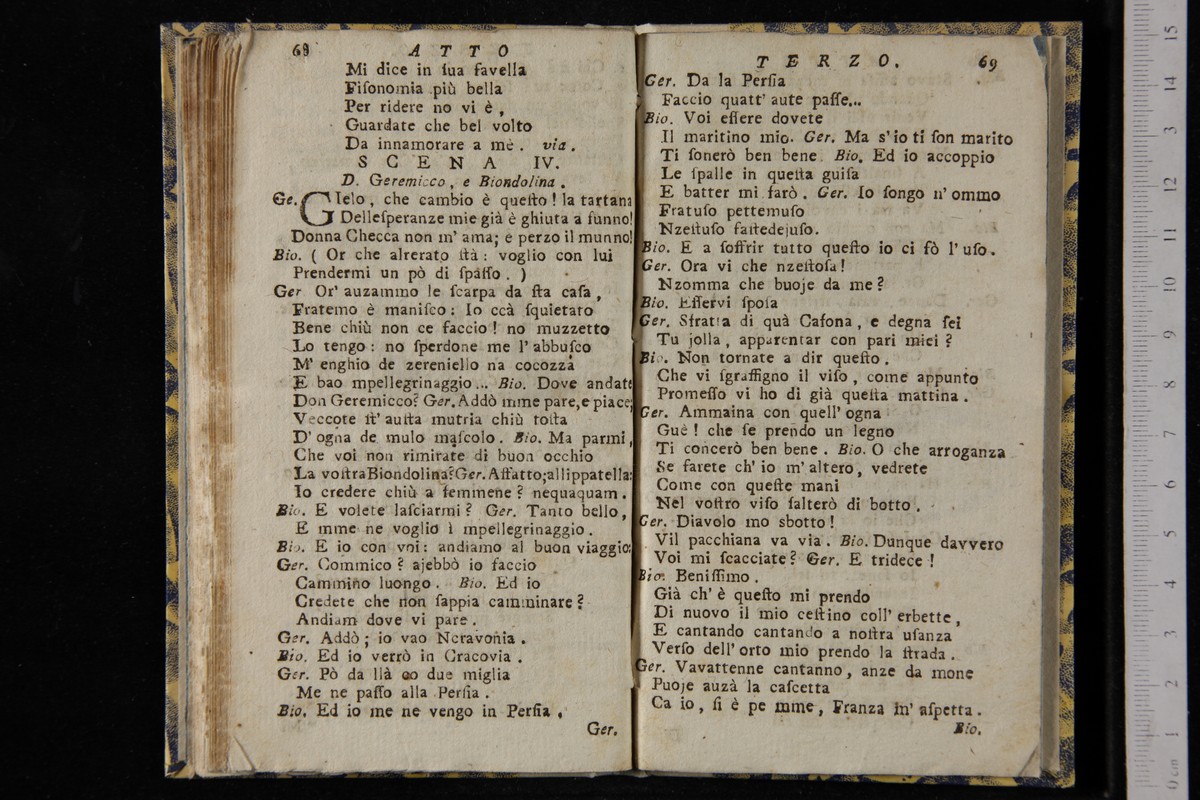 68 ATTO
Mi dice in ſua favella
Fiſonomia più bella
Per ridere no vi è ,
Guardate che bel volto
Da innamorare a me . via .
SCENA IV.
D. Geremicco , e Biondolina .
Ge. GIelo , che cambio è queſto ! la tartana
Delleſperanze mie già è ghiuta a funno!
Donna Checca non m' ama; e perzo il munno!
Bio. ( Or che alrerato ſtà : voglio con lui
Prendermi un pò di ſpaſſo . )
Ger Or' auzammo le ſcarpa da ſta caſa ,
Fratemo è maniſco : Io ccà ſquietaro
Bene chiù non ce faccio ! no muzzetto
Lo tengo : no ſperdone me l' abbuſco
M' enghio de zereniello na cocozza
E bao mpellegrinaggio ... Bio. Dove andate
Don Geremicco? Ger. Addò mme pare, e piace;
Veccote ſt' auſta mutria chiù toſta
D' ogna de mulo maſcolo . Bio. Ma parmi ,
Che voi non rimirate di buon occhio
La voſtraBiondolina? Ger. Affatto; allippatella:
Io credere chiù a femmene ? nequaquam .
Bio. E volete laſciarmi ? Ger. Tanto bello ,
E mme ne voglio ì mpellegrinaggio .
Bio. E io con voi : andiamo al buon viaggio:
Ger. Commico ? ajebbò io faccio
Cammino luongo . Bio. Ed io
Credete che non ſappia camminare ?
Andiam dove vi pare .
Ger. Addò ; io vao Ncravonia .
Bio. Ed io verrò in Cracovia .
Ger. Pò da llà co due miglia
Me ne paſſo alla Perſia .
Bio. Ed io me ne vengo in Perſia .
Ger.
TERZO. 69
Ger. Da la Perſia
Faccio quatt' aute paſſe...
Bio. Voi eſſere dovete
Il maritino mio. Ger. Ma s' io ti ſon marito
Ti ſonerò ben bene. Bio. Ed io accoppio
Le ſpalle in queſta guiſa
E batter mi farò . Ger. Io ſongo n' ommo
Fratuſo pettemuſo
Nzeſtuſo faſtedejuſo.
Bio. E a ſoffrir tutto queſto io ci fò l' uſo .
Ger. Ora vi che nzeſtoſa !
Nzomma che buoje da me ?
Bio. Eſſervi ſpoſa
Ger. Sfratta di quà Cafona , e degna ſei
Tu jolla , apparentar con pari miei ?
Bio. Non tornate a dir queſto .
Che vi ſgraffigno il viſo , come appunto
Promeſſo vi ho di già queſta mattina .
Ger. Ammaina con quell' ogna
Guè ! che ſe prendo un legno
Ti concerò ben bene . Bio. O che arroganza
Se farete ch' io m' altero , vedrete
Come con queſte mani
Nel voſtro viſo ſalterò di botto .
Ger. Diavolo mo sbotto !
Vil pacchiana va via . Bio. Dunque davvero
Voi mi ſcacciate ? Ger. E tridece !
Bio. Beniſſimo .
Già ch' è queſto mi prendo
Di nuovo il mio ceſtino coll' erbette ,
E cantando cantando a noſtra uſanza
Verſo dell' orto mio prendo la ſtrada .
Ger. Vavattenne cantanno , anze da mone
Puoje auzà la caſcetta
Ca io , ſi è pe mme , Franza m' aſpetta .
Bio.